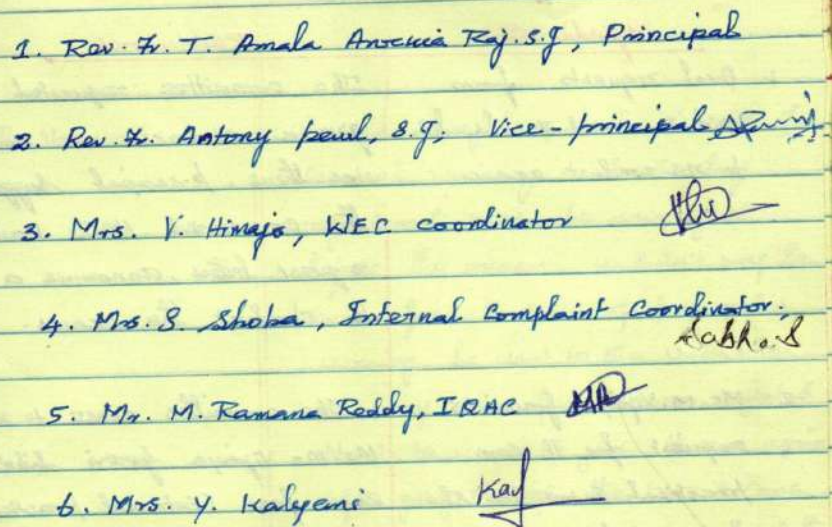 1. Rev. Fr. T. Amala Arockia Raj. S.J, Principal
2. Rev. Fr. Antony paul, S.J, Vice-principal
3. Mrs. V. Himaja, WEC coordinator
4. Mrs. S. Shoba, Internal Complaint Coordinator.
5. Mr. M. Ramana Reddy, IQAC
6. Mrs. Y. Kalyani Kay